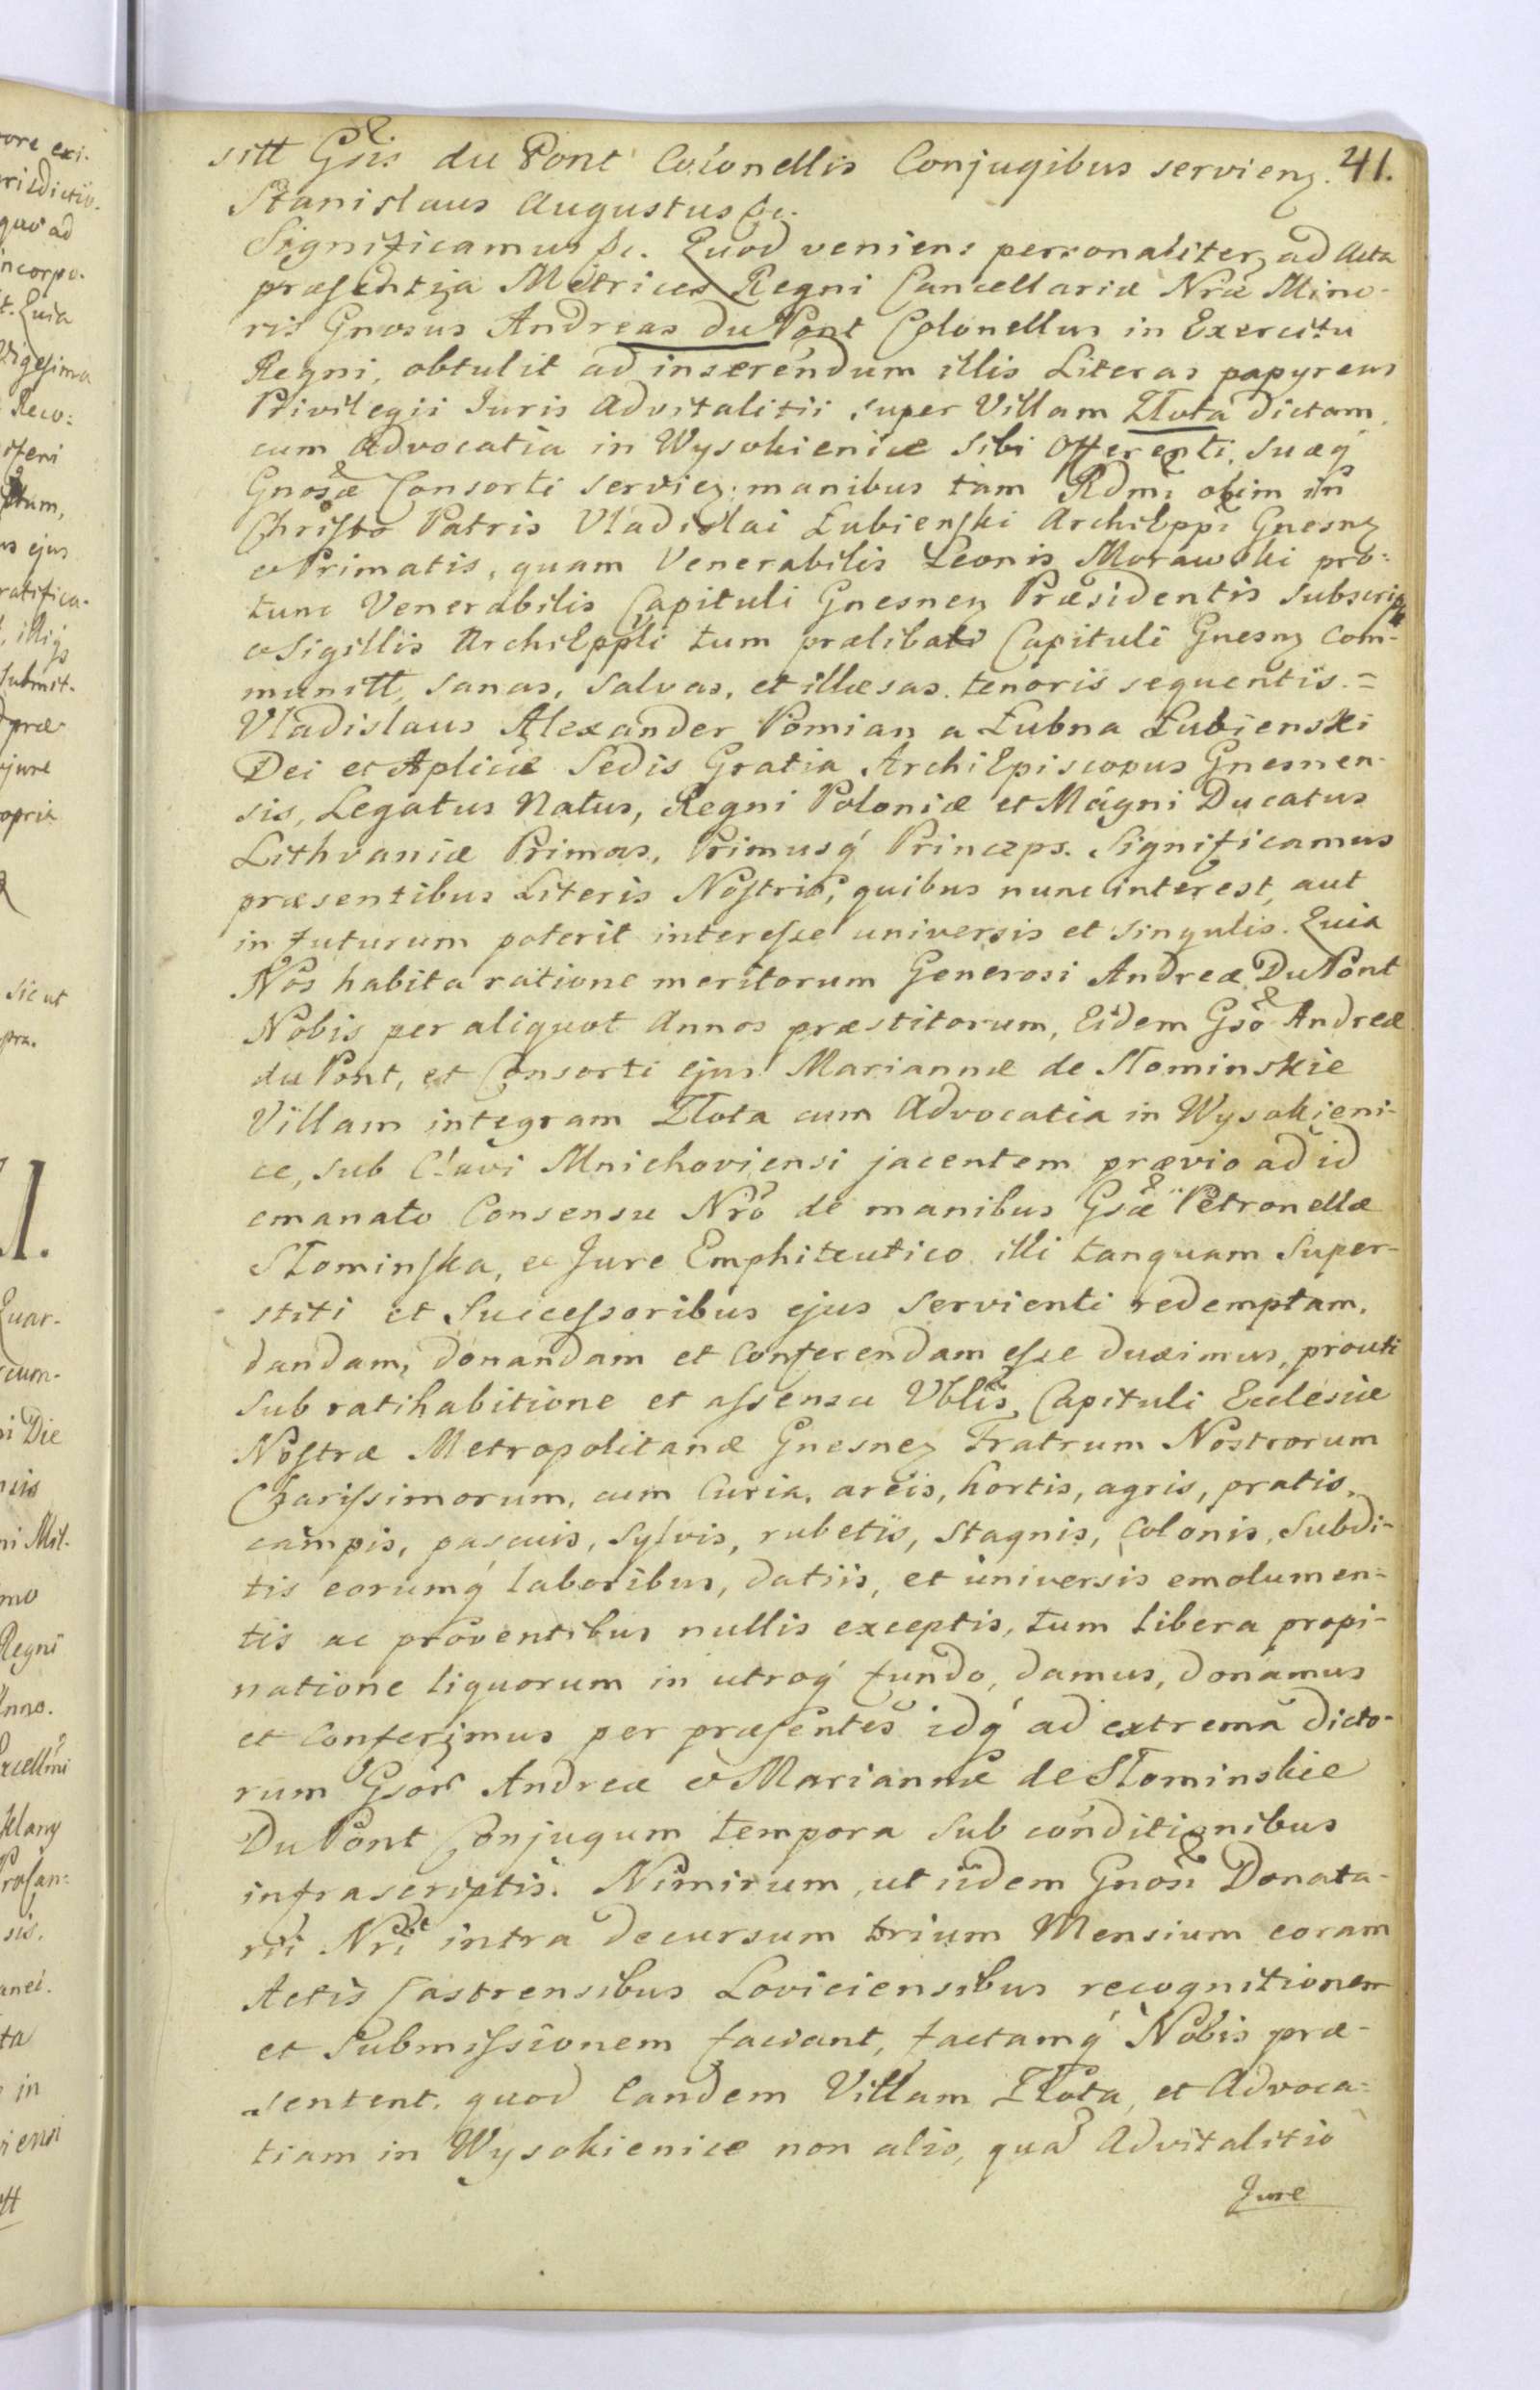 41.
sitt Gsis du Pont Colonellis Conjugibus servienz.
Stanislaus Augustus &c.
Significamus &c. Quod veniens personaliter ad Acta
præsentia Metrices Regni Cancellariæ Nræ Mino-
ris Gnosus Andreas du Pont Colonellus in Exercitu
Regni, obtulit ad inserendum illis Literas papyreas
Privilegii Iuris Advitalitii super Villam Złota dictam,
cum Advocatia in Wysokienice sibi Offerenti, suæq́
Gnosæ Consorti serviez. manibus tam Rdmi olim in
Christo Patris Vladislai Łubienski Archieppi Gnesnz
et Primatis, quam Venerabilis Leonis Morawski pro-
tunc Venerabilis Capituli Gnesnez Præsidentis subscrip
et Sigillis Archieppli tum prælibati Capituli Gnesnz com-
munitt, sanas, salvas, et illæsas. tenoris sequentis. =
Vladislaus Alexander Pomian a Łubna Łubienski
Dei et Aplicæ Sedis Gratia Archiepiscopus Gnesnen-
sis, Legatus Natus, Regni Poloniæ et Magni Ducatus
Lithvaniæ Primas, Primusq́ Princeps. Significamus
præsentibus Literis Nostris, quibus nunc interest, aut
in futurum poterit interesse universis et singulis. Quia
Nos habita ratione meritorum Generosi Andreæ Du Pont
Nobis per aliquot Annos præstitorum, Eidem Gso Andreæ
du Pont, et Consorti ejus Mariannæ de Słominskie
Villam integram Złota cum Advocatia in Wysokieni-
ce, sub Clavi Mnichoviensi jacentem prævio ad id
emanato Consensu Nro de manibus Gsæ Petronellæ
Słominska, ex Jure Emphiteutico illi tanquam super-
stiti et Successoribus ejus servienti redemptam,
dandam, donandam et Conferendam esse duximus, prouti
sub ratihabitione et assensu Vblis Capituli Ecclesiæ
Nostræ Metropolitanæ Gnesnez Fratrum Nostrorum
Charissimorum, cum Curia, areis, hortis, agris, pratis,
campis, pascuis, sylvis, rubetis, stagnis, Colonis, subdi-
tis eorumq́ laboribus, datiis, et universis emolumen-
tis ac proventibus nullis exceptis, tum libera propi-
natione liquorum in utroq́ fundo, damus, donamus
et Conferimus per præsentes idq́ ad extrema dicto-
rum Gsor Andreæ et Mariannæ de Słominskie
Du Pont Conjugum tempora sub conditionibus
infrascriptis. Nimirum, ut iidem Gnosi Donata-
rii Nri intra decursum trium Mensium coram
Actis Castrensibus Loviciensibus recognitionem
et Submissionem faciant, factamq́ Nobis præ-
sentent, quod Eandem Villam Złota, et Advoca-
tiam in Wysokienice non alio, qua Advitalitio
Jure